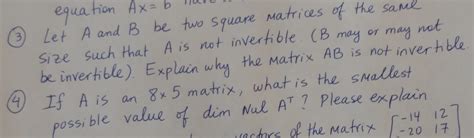 equation Ax = b
③ Let A and B be two square matrices of the same
size such that A is not invertible. (B may or may not
be invertible). Explain why the matrix AB is not invertible.
④ If A is an 8x5 matrix, what is the smallest
possible value of dim Nul Aᵀ? Please explain
vectors of the matrix [-14 12
-20 17]